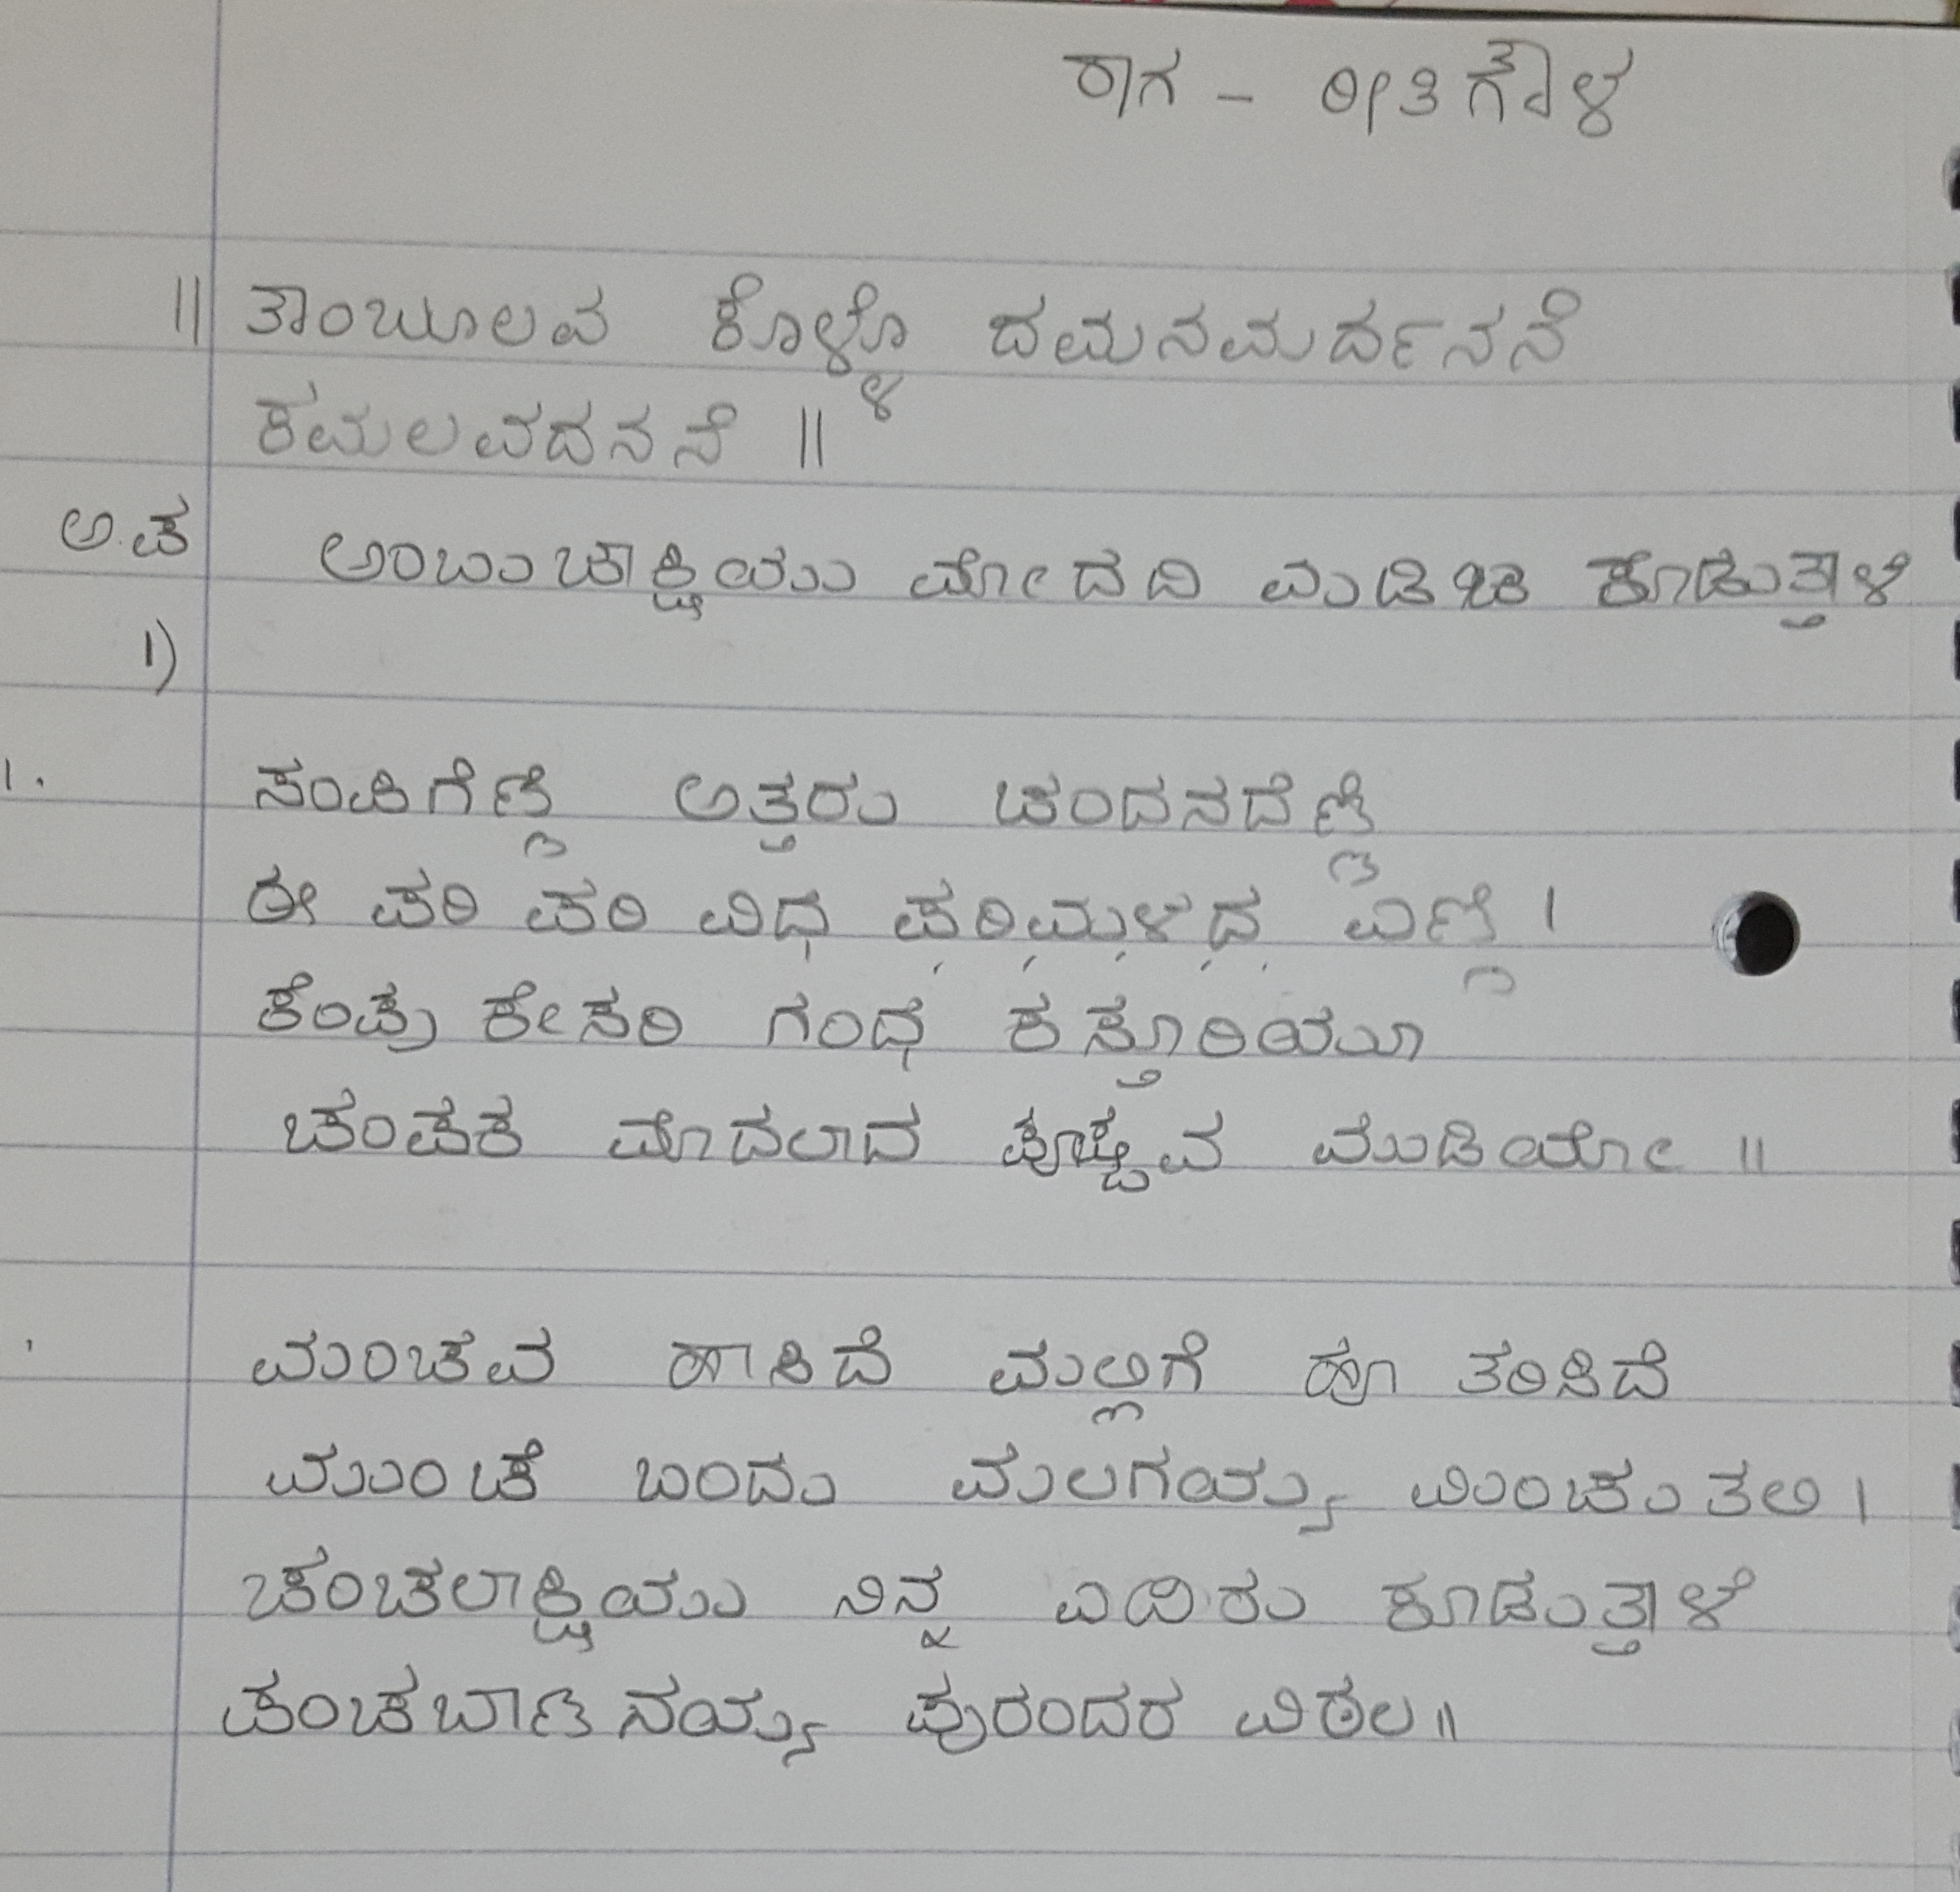 ರಾಗ - ರೀತಿಗೌಳ
|| ತಾಂಬೂಲವ ಕೊಳ್ಳೊ ದಮನಮರ್ದನನೆ
ಕಮಲವದನನೆ ||
ಅ.ಪ ಅಂಬುಜಾಕ್ಷಿಯು ಮೋದದಿ ಮಡಿಚಿ ಕೂಡುತ್ತಾಳೆ
1)
1. ಸಂಪಿಗೆಣ್ಣೆ ಅತ್ತರು ಚಂದನದೆಣ್ಣೆ
ಈ ಪರಿ ಪರಿ ವಿಧ ಪರಿಮಳದ ಎಣ್ಣೆ |
ಕೆಂಪು ಕೇಸರಿ ಗಂಧ ಕಸ್ತೂರಿಯೂ
ಚಂಪಕ ಮೊದಲಾದ ಪುಷ್ಪವ ಮುಡಿಯೋ ||
ಮಂಚವ ಹಾಸಿದೆ ಮಲ್ಲಿಗೆ ಹೂ ತರಿಸಿದೆ
ಮುಂಚೆ ಬಂದು ಮಲಗಯ್ಯ ಮಿಂಚುತಲಿ |
ಚಂಚಲಾಕ್ಷಿಯು ನಿನ್ನ ಎದಿರು ಕೂಡುತ್ತಾಳೆ
ಪಂಚಬಾಣನಯ್ಯ ಪುರಂದರ ವಿಠಲ ||